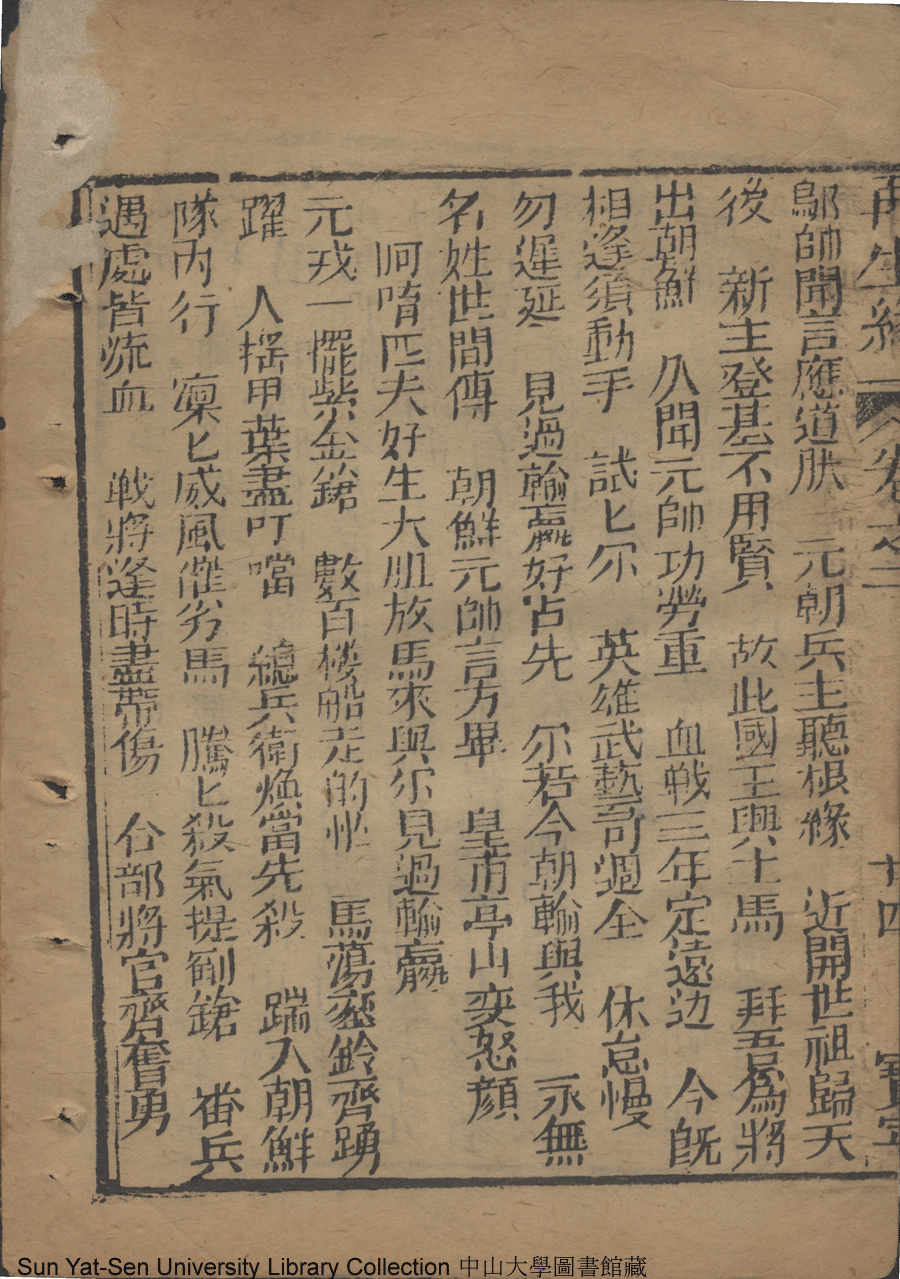 再生緣 卷之二 廿四 寶寧
鄔帥聞言應道肰 元朝兵主聽根緣 近開世祖歸天
後 新主登基不用賢 故此國王興士馬 拜吾為將
出朝鮮 久聞元帥功勞重 血戰三年定遠边 今既
相逢須動手 試匕尔 英雄武藝可週全 休怠慢
勿遲延 見過輸贏好占先 尔若今朝輸與我 永無
名姓世間傳 朝鮮元帥言方畢 皇甫亭山变怒顏
呵唷匹夫好生大胆放馬來與尔見過輸贏
元戎一擺紫金鎗 數百楼船走的忙 馬蕩鸾鈴齊踴
躍 人搖甲葉盡叮噹 總兵衛煥當先殺 踹入朝鮮
隊內行 凜匕威風催劣馬 騰匕殺氣提剛鎗 畨兵
遇處皆流血 戰將逢時盡帶傷 合部將官齊奮勇
Sun Yat-Sen University Library Collection 中山大學圖書館藏